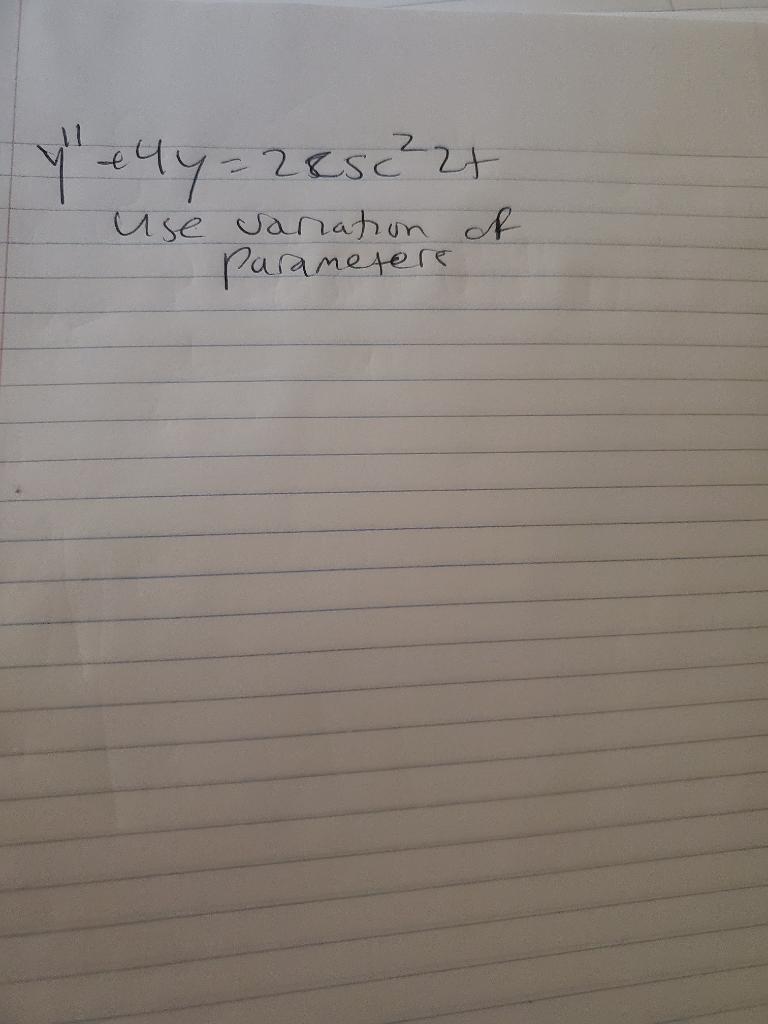 y'' + 4y = 2csc² 2t
use variation of
parameters